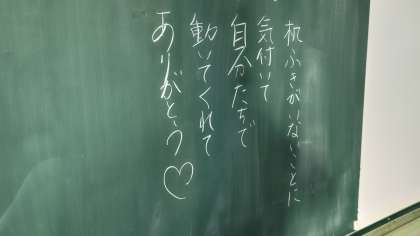 机ふきがいないことに
気付いて
自分たちで
動いてくれて
ありがとう♡